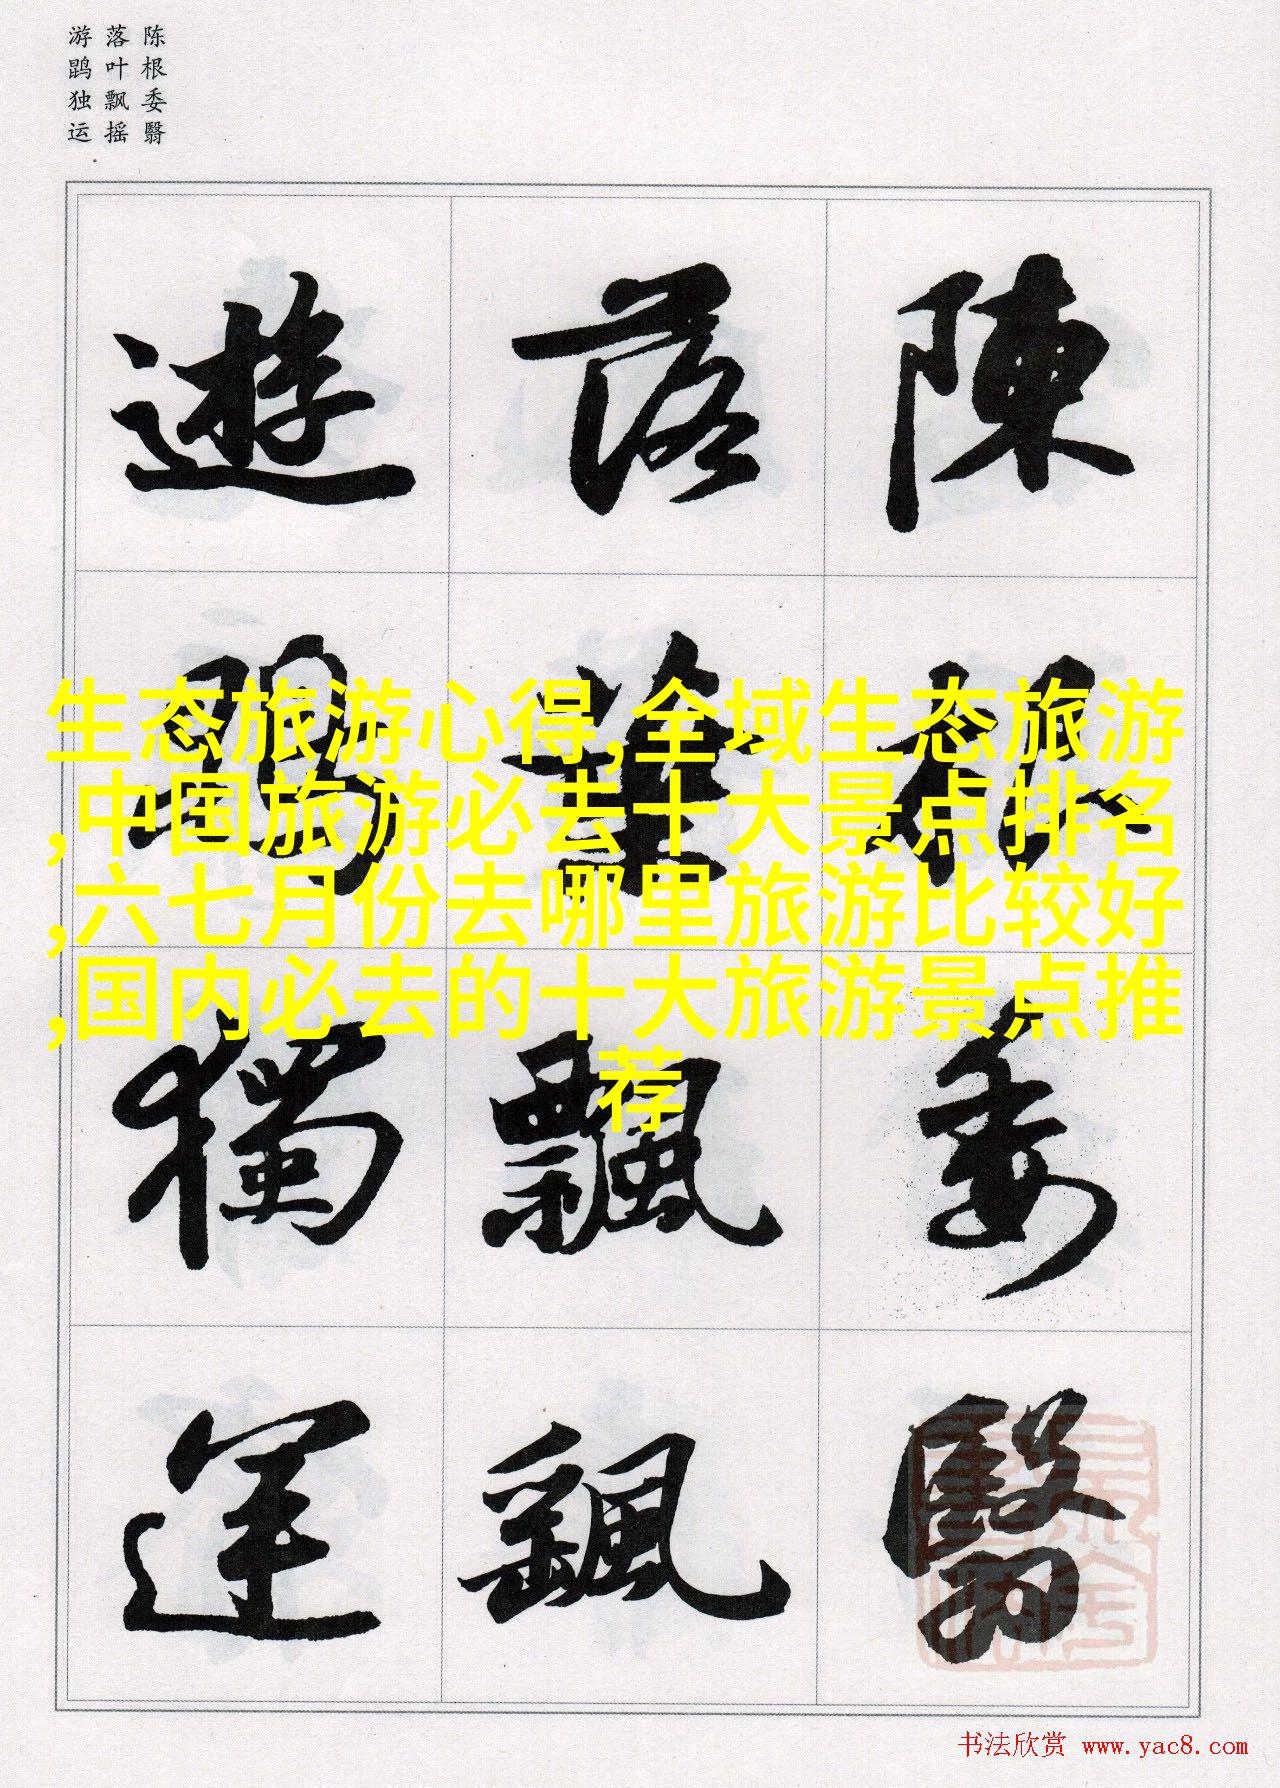 陈根委翳
落叶飘摇
游鹍独运
陳根委翳
落葉飄飖
遊鵾獨運
生态旅游心得,全域生态旅游
,中国旅游必去十大景点排名
,六七月份去哪里旅游比较好
,国内必去的十大旅游景点推
荐
书法欣赏 www.yac8.com